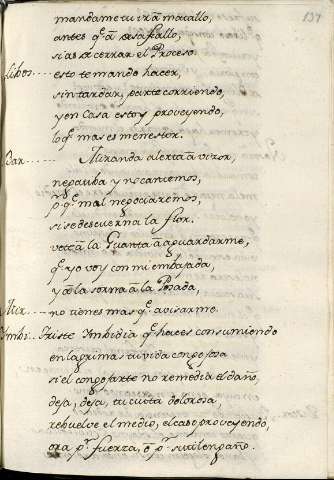 137
mandame tu irà macallo,
antes q.e à fallo,
si as de cerrar el Proceso.
Libos.... esto te mando hacer,
sin tardar, parte corriendo,
y en Casa estoy proveyendo,
lo q.e mas es menestor.
Dar..... Miranda alerta
y no cansemos,
q.e mal negociaremos,
si se descuerna la flor.
à la Guanta à aguardarme,
q.e yo voy con mi embajada,
la sorna à la Posada,
Mir.... no tienes mas q.e avisarme.
Ymbi:.. Triste Ymbidia q.e haces consumiendo
en lagrimas tu vida congojosa
si el congojarte no remedia el daño,
deja, deja, tu cuita dolorosa,
rebuelve el medio, el caso proveyendo,
ora p.r fuerza, ò p.r sutil engaño.